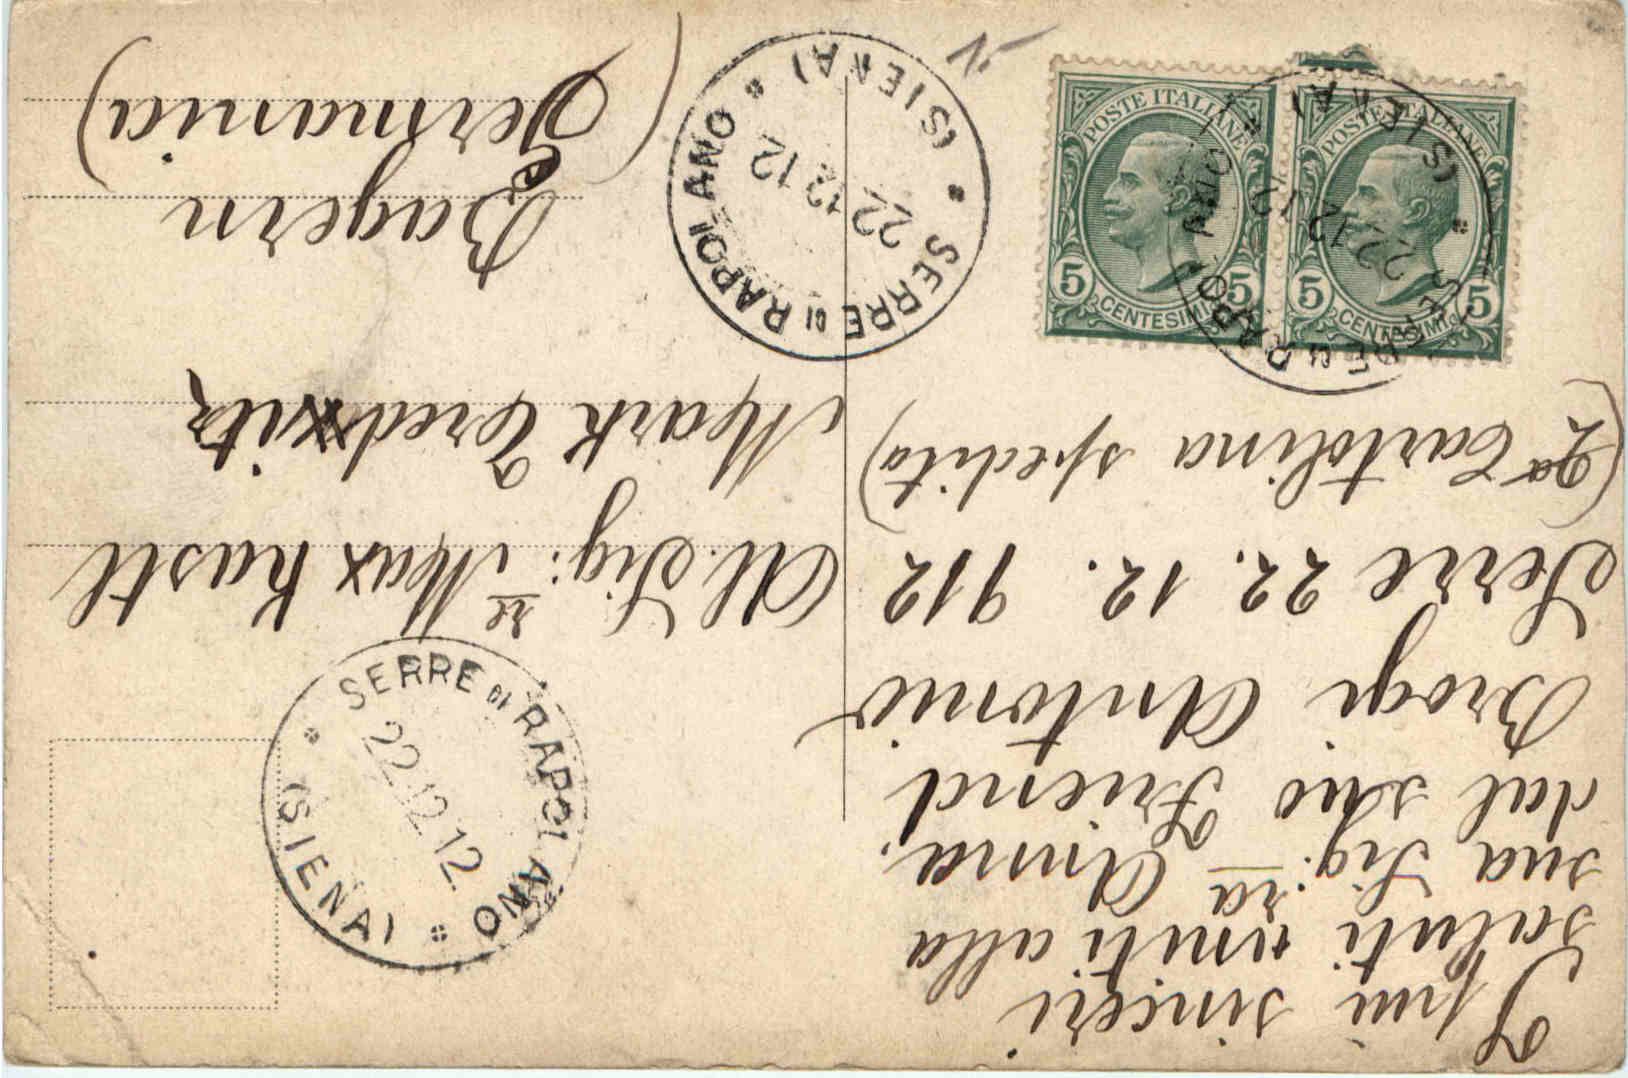 I piu sinceri
saluti uniti alla
sua Sig:ra Anna.
dal suo Friend
Brogi Antonio
Serre 22. 12. 912
(2a Cartolina spedita)
All. Sig:re Max Kastl
Mark Tredxitz
Bayern
(Germania)
SERRE DI RAPOLANO
(SIENA)
22 12 12
SERRE DI RAPOLANO
(SIENA)
22 12 12
SERRE DI RAPOLANO
(SIENA)
22 12 12
POSTE ITALIANE
5 CENTESIMI 5
POSTE ITALIANE
5 CENTESIMI 5